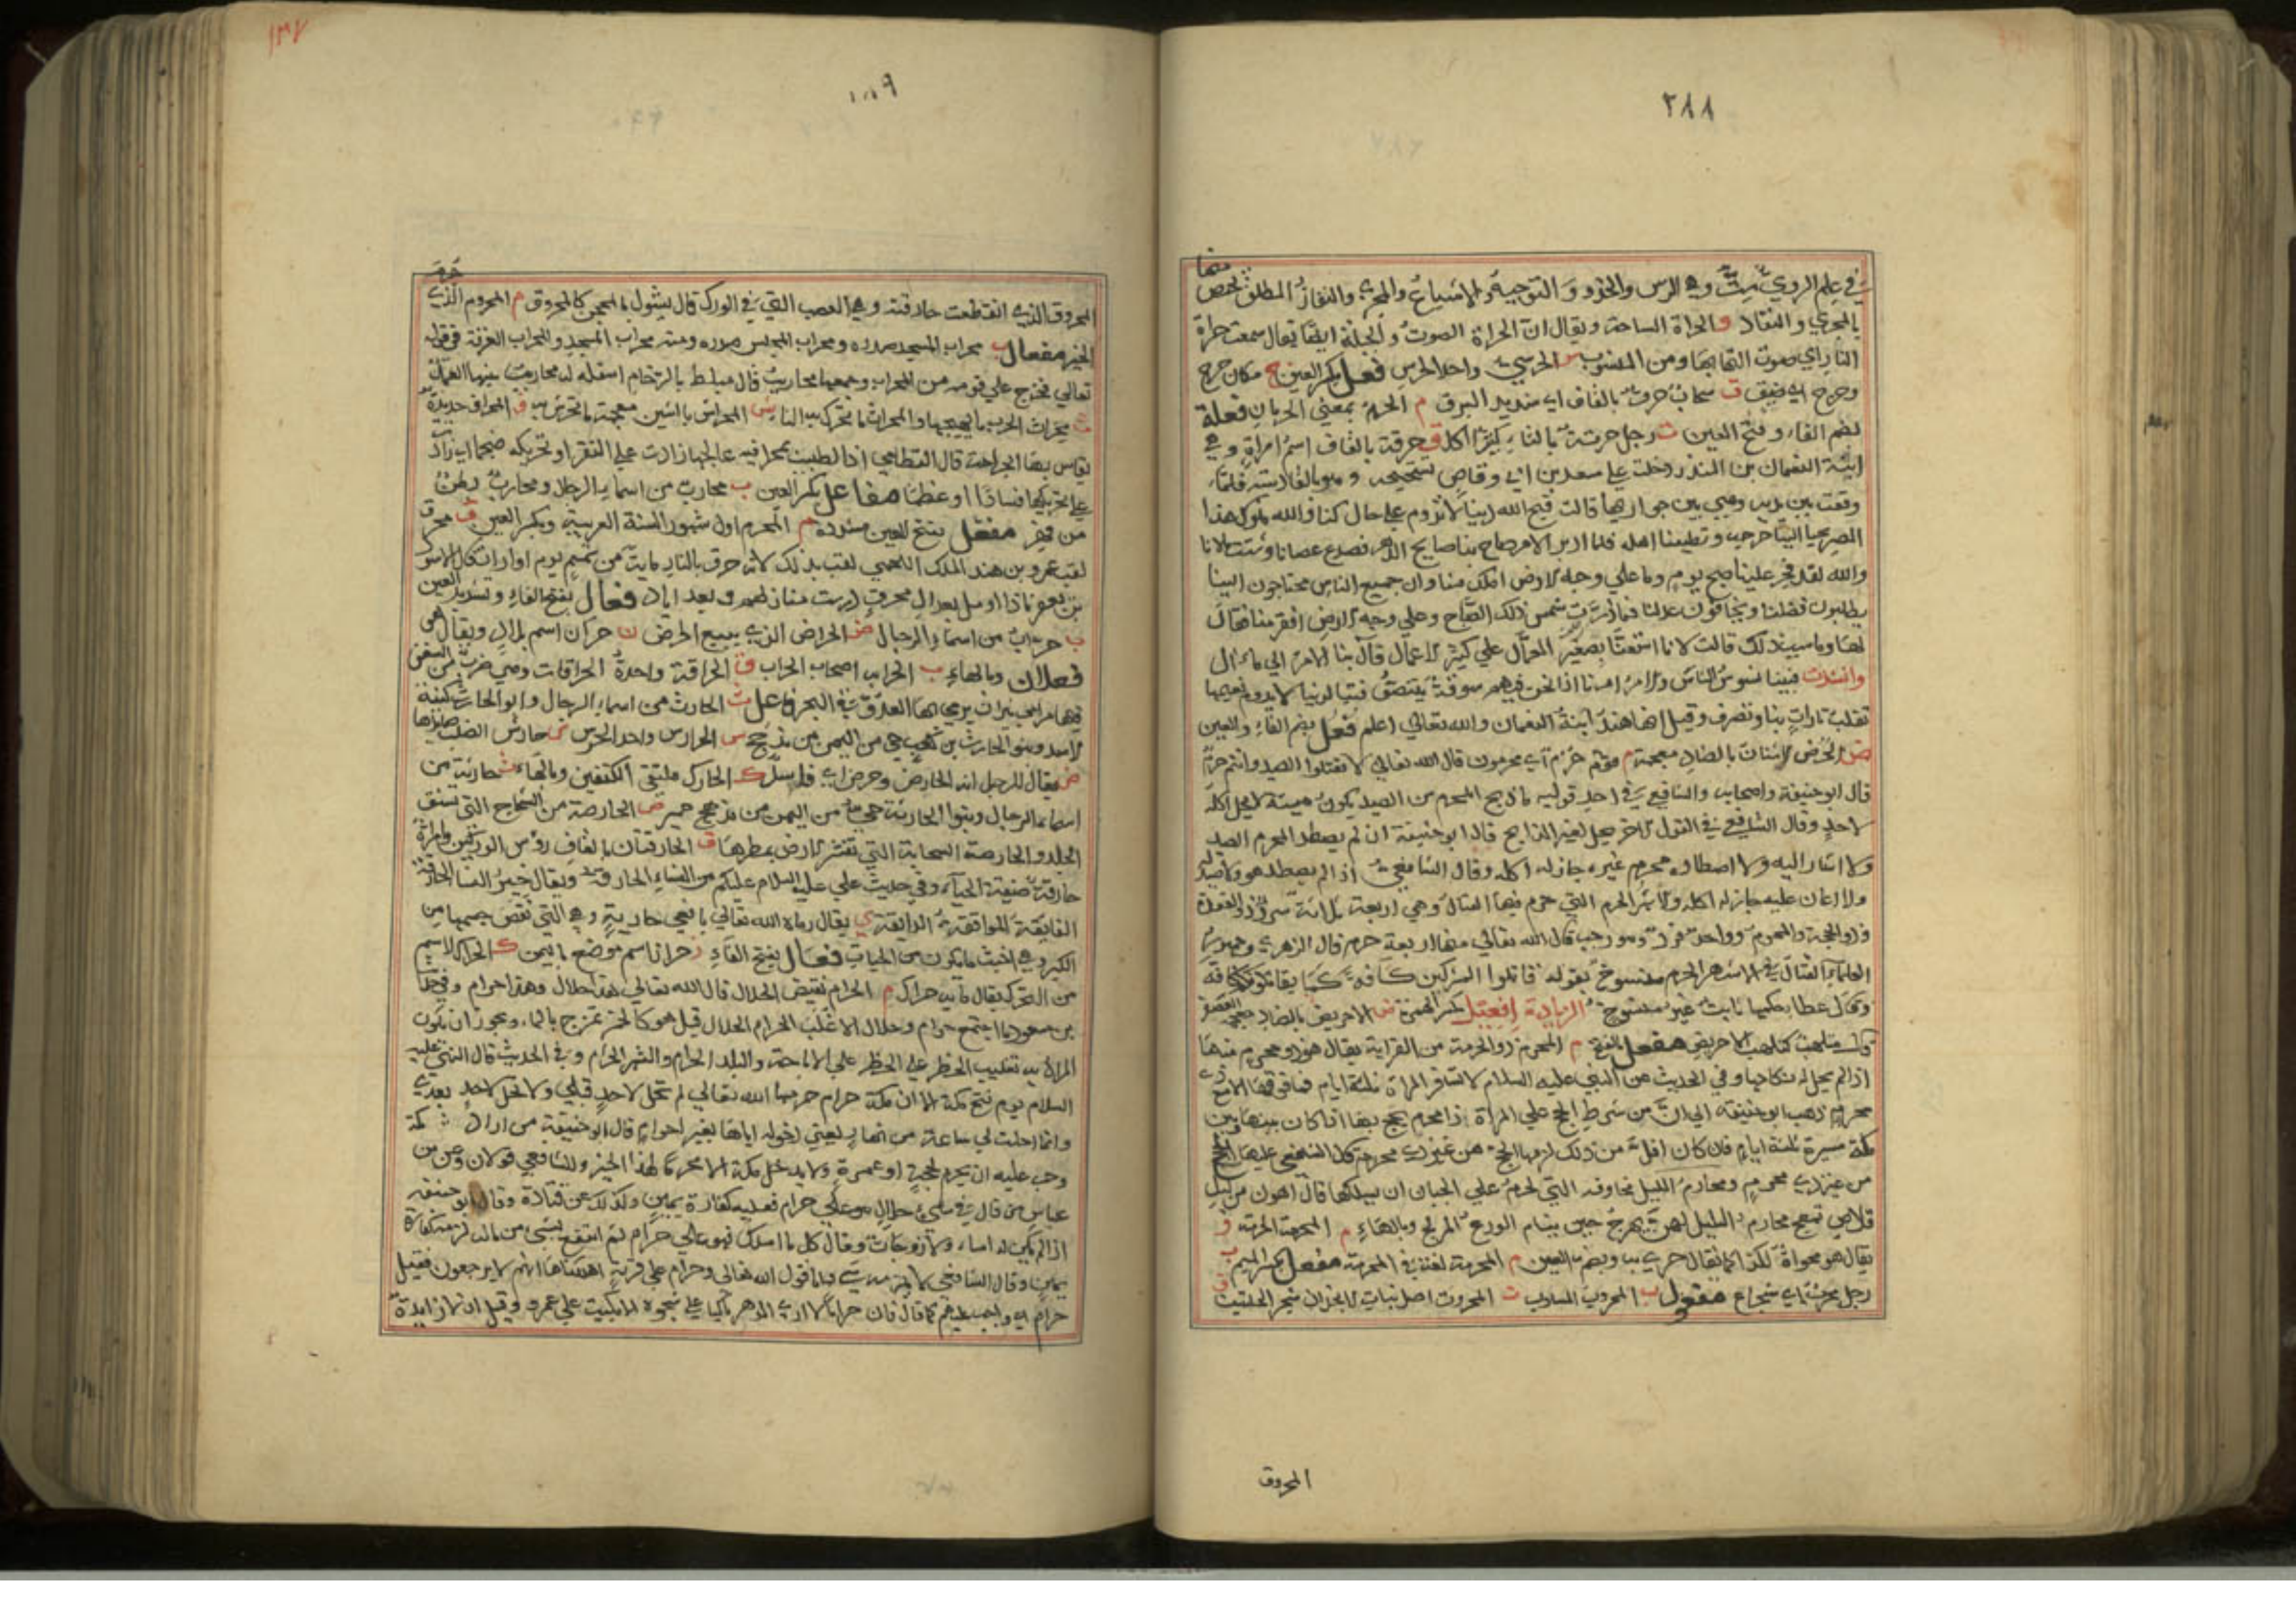 ٢٨٨
في علم الروي ستٌّ وهي الرس والحذو والتوجيه والاشباع والمجرى والنفاذ المطلق تختص منها
بالمجري والنفاذ و الحراة الساحة ويقال ان الحراة الصوت والجلبة ايضا يقال سمعت حراة
النار اي صوت التهابها ومن المنسوب س الحرسي واحد الحرس فَعِل بكسر العين ج مكان حرج
وحرج اي ضيق ق سحاب حرق بالقاف اي شديد البرق م الحرم بمعنى الحرمان فعلة
بضم الفاء وفتح العين ت رجل حرتة بالتاء كثير الاكل ق حرقة بالقاف اسم امراة وهي
ابنة النعمان بن المنذر دخلت علي سعد بن ابي وقاص وهو بالقادسية فلما
وقفت بين يديه وهي بين جواريها قالت قبح الله دنيا لا تدوم علي حال كنا والله ملوك هذا
المصر يجبا الينا خرجه وتطيعنا اهله فلما ادبر الامر صاح بنا صايح الدهر فصدع عصانا وشتت ملانا
والله لقد فجر علينا صبح يوم وما علي وجه الارض املك منا وان جميع الناس محتاجون الينا
يطلبون فضلنا ويخافون عدلنا فما غربت شمس ذلك الصباح وعلي وجه الارض افقر منا فقال
لها وما سبب ذلك قالت لانا
وانشدت فبينا نسوس الناس والامر امرنا اذا نحن فيهم سوقة نتنصف فتبا لدنيا لا يدوم نعيمها
تقلب تارات بنا وتصرف وقيل انها هند ابنة النعمان والله تعالى اعلم فُعُل بضم الفاء والعين
ض الحرض الاشنان بالضاد معجمة م قوم حرم اي محرمون قال الله تعالى لا تقتلوا الصيد وانتم حرم
قال ابو حنيفة واصحابه والشافعي في احد قوليه ما ذبح المحرم من الصيد يكون ميتة لا يحل اكله
لاحد وقال الشافعي في القول الاخر يحل لغير الذابح قال ابو حنيفة ان لم يصطد المحرم الصيد
ولا اشار اليه ولا اصطاده محرم غيره جاز له اكله وقال الشافعي اذا لم يصطد هو ولا صيد له
ولا اعان عليه جاز له اكله والاشهر الحرم التي حرم فيها القتال وهي اربعة ثلاثة سرد ذو القعدة
وذو الحجة والمحرم وواحد فرد وهو رجب قال الله تعالى منها اربعة حرم قال الزهري وجمهور
العلماء القتال في الاشهر الحرم منسوخ بقوله قاتلوا المشركين كافة كما يقاتلونكم كافة
وقال عطا حكمها ثابت غير منسوخ الزيادة افعيل بكسر الهمزة ض الاحريض بالضاد معجمة العصفر
قال ملتهب كلهب الاحريض مفعل بالفتح م المحرم ذو الحرمة من القرابة يقال هو ذو محرم منها
اذا لم يحل له نكاحها وفي الحديث عن النبي عليه السلام لا تسافر المراة ثلثة ايام فما فوقها الا مع ذي
محرم ذهب ابو حنيفة الي ان من شرط الحج علي المراة ذا محرم يحج بها اذا كان بينها وبين
مكة مسيرة ثلثة ايام فان كان اقل من ذلك لزمها الحج من غير ذي محرم قال الشافعي عليها الحج
من غير ذي محرم ومحارم الليل مخاوفه التي تحرم علي الجبان ان يسلكها قال اهون من ليل
قلاص تمعج محارم الليل لهن بهرج حين ينام الورع المزلج وبالهاء م المحرمة الحرمة و
يقال هو محراة لكذا كما يقال حري به وبضم العين م المحرمة لغة في المحرمة مفعل بكسر الميم ب
رجل محرب اي شجاع مفعول ب المحروب المسلوب ت المحروت اصل نبات الانجدان شجر الحلتيت ق
المحروق
١٣٧
المحروق الذي انقطعت حارقته وهي العصب التي في الورك قال يشول بالمحجن كالمحروق م المحروم الذي حرم
الخير مفعال ب محراب المسجد صدره ومحراب المجلس صدره ومنه محراب المسجد والمحراب الغرفة في قوله
تعالى فخرج علي قومه من المحراب وجمعها محاريب قال
ث محراث الحرب ما يهيجها والمحراث ما تحرك به النار ش المحراش بالشين معجمة ما تحرش به ف المحراف حديدة
يقاس بها الجراحة قال القطامي اذا الطبيب بمحرافيه عالجها زادت علي النقر او تحريكه ضجما اي زاد
علي تحريكها فسادا او عظما مفاعل بكسر العين ب محارب من اسماء الرجال ومحارب بطن
من فهر مفعل بفتح العين مشددة م المحرم اول شهور السنة العربية وبكسر العين ق محرق
لقب عمرو بن هند الملك اللخمي لقب بذلك لانه حرق بالنار ماية من تميم يوم اوارات قال الاسود
بن يعفر ماذا اومل بعد آل محرق درست منازلهم وبعد اياد فعال بفتح الفاء وتشديد العين
ب حراب من اسماء الرجال ض الحراض الذي يبيع الحرض ن حران اسم بلد ويقال هي
فعلان وبالهاء ب الحرابة اصحاب الحراب ق الحراقة واحدة الحراقات وهي ضرب من السفن
فيها مرامي نيران يرمي بها العدو في البحر فاعل ث الحارث من اسماء الرجال وابو الحارث كنية
الاسد وبنو الحارث بن كعب حي من اليمن من مذحج س الحارس واحد الحرس ش حارش الضب صائدها
ض يقال للرجل انه لحارض وحرض اي فاسد ك الحارك ملتقى الكتفين وبالهاء ث حارثة من
اسماء الرجال وبنوا الحارثة حي من اليمن من مذحج حمير ص الحارصة من الشجاج التي تشق
الجلد والحارصة السحابة التي تقشر الارض بمطرها ق الحارقتان بالقاف رؤس الوركين وامراة
حارقة ضيقة الحياء وفي حديث علي عليه السلام عليكم من النساء الحارقة ويقال خير النسا الحارقة
الفايقة الموافقة الرايقة ي يقال رماه الله تعالى بافعى حارية وهي التي نقص جسمها من
الكبر وهي اخبث ما يكون من الحيات فعال بفتح الفاء ز حراز اسم موضع باليمن ك الحراك الاسم
من التحرك يقال ما به حراك م الحرام نقيض الحلال قال الله تعالى هذا حلال وهذا حرام وفي حديث
بن مسعود ما اجتمع حرام وحلال الا غلب الحرام الحلال قيل هو كالخمر تمزج بالماء ويجوز ان يكون
المراد به تغليب الحظر علي الاباحة والبلد الحرام والشهر الحرام وفي الحديث قال النبي عليه
السلام يوم فتح مكة الا ان مكة حرام حرمها الله تعالى لم تحل لاحد قبلي ولا تحل لاحد بعدي
وانما احلت لي ساعة من نهار يعني دخوله اياها بغير احرام قال ابو حنيفة من اراد مكة
وجب عليه ان يحرم لحجة او عمرة ولا يدخل مكة الا محرما لهذا الخبر وللشافعي قولان وعن بن
عباس من قال في شيء حلال هو علي حرام فعليه كفارة يمين وكذلك عن قتادة وقال ابو حنيفة
اذا لم يكن له اماء ولا زوجات وقال كل ما املك فهو علي حرام ثم انتفع بشيء من ماله لزمته كفارة
يمين وقال الشافعي لا يلزمه شيء قول الله تعالى وحرام علي قرية اهلكناها انهم لا يرجعون فقيل
حرام اي واجب عليهم كما قال فان حراما لا اري الدهر باكيا علي شجوه الا بكيت علي عمرو وقيل ان لا زايدة